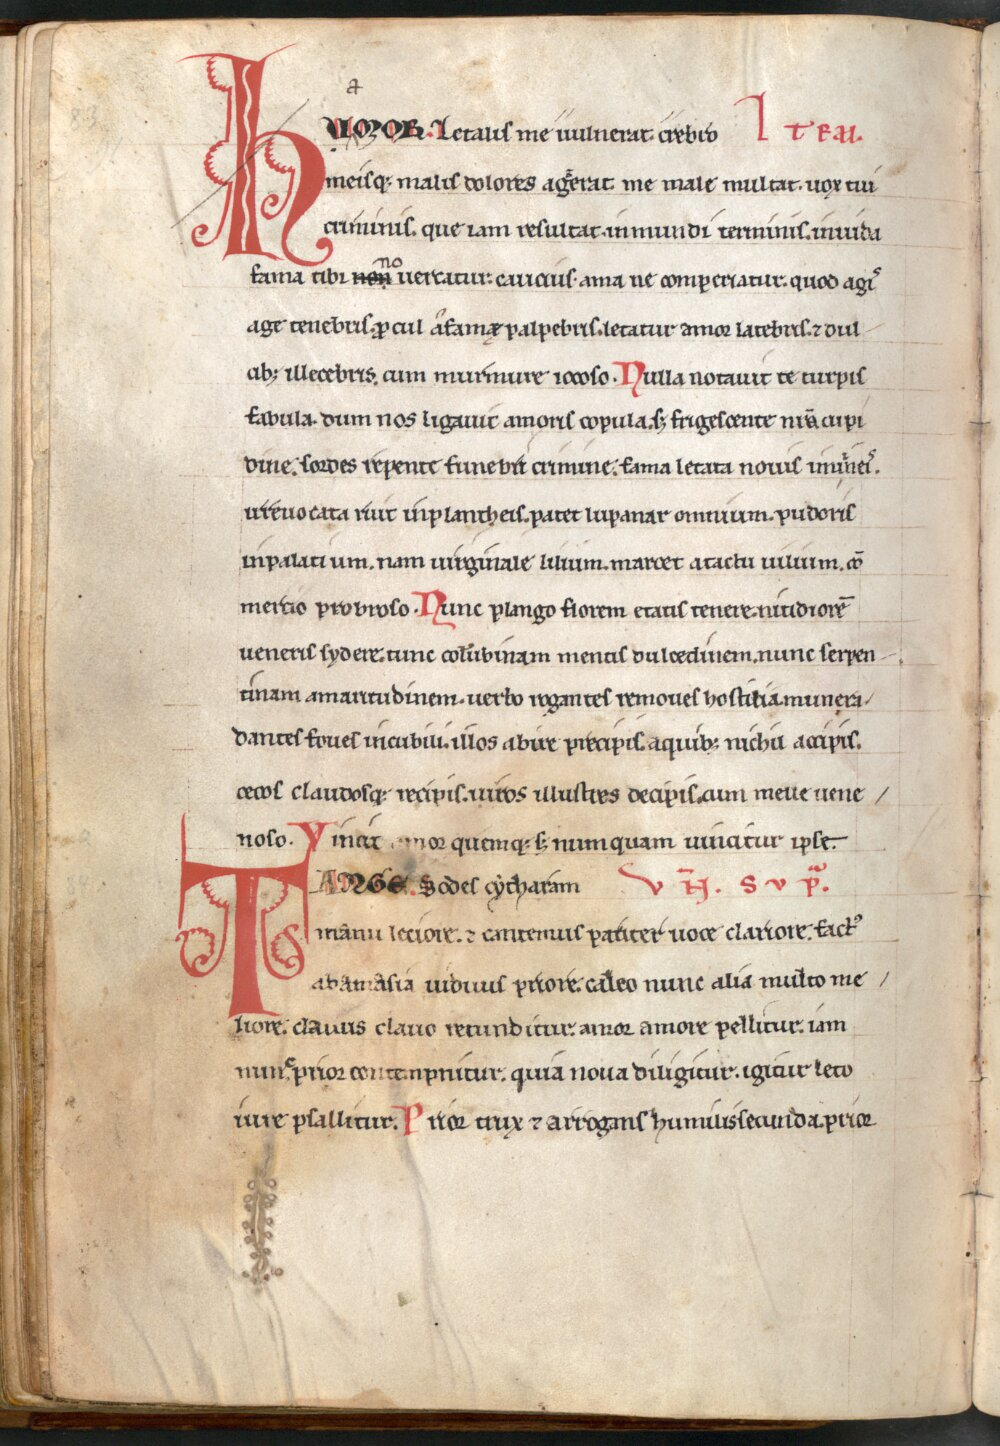 a
HUMOR. Letalis me uulnerat. crebro Item.
meisq; malis dolores aggerat. me male multat. uox tui
criminis. que iam resultat. in mundi terminis. inuida
fama tibi no uercatur. cautius. ama ne comperiatur. quod agis
age tenebris. procul a famę palpebris. letatur amor latebris. ⁊ dul
cib; illecebris. cum murmure iocoso. Nulla notauit te turpis
fabula. dum nos ligauit amoris copula. sꝫ frigescente nr̄a cupi
dine. sordes repente funebri crimine. fama letata nouis
irreuocata ruit in plantheis. patet lupanar omnium. pudoris
in palatium. nam uirginale lilium. marcet a tactu uilium. cō
mercio probroso. Nunc plango florem etatis tenere. nitidiorē
ueneris sydere. tunc columbinam mentis dulcedinem. nunc serpen
tinam amaritudinem. uerbo rogantes remoues hostilia. munera
dantes foues in cubili. illos abire precipis. a quib; nichil accipis.
cecos claudosq; recipis. uiros illustres decipis. cum melle uene
noso. Vincit amor quemq; sꝫ numquam uincitur ipse.
TANGE. Sodes cytharam Vn̄. Sup̄.
manu letiore. ⁊ cantemus pariter uoce clariore. factus
ab amasia uiduus priore. caleo nunc alia multo me
liore. clauus clauo retunditur. amor amore pellitur. iam
nunc prior contempnitur. quia noua diligitur. igitur leto
iure psallitur. Prior trux ⁊ arrogans humilis secunda. prior